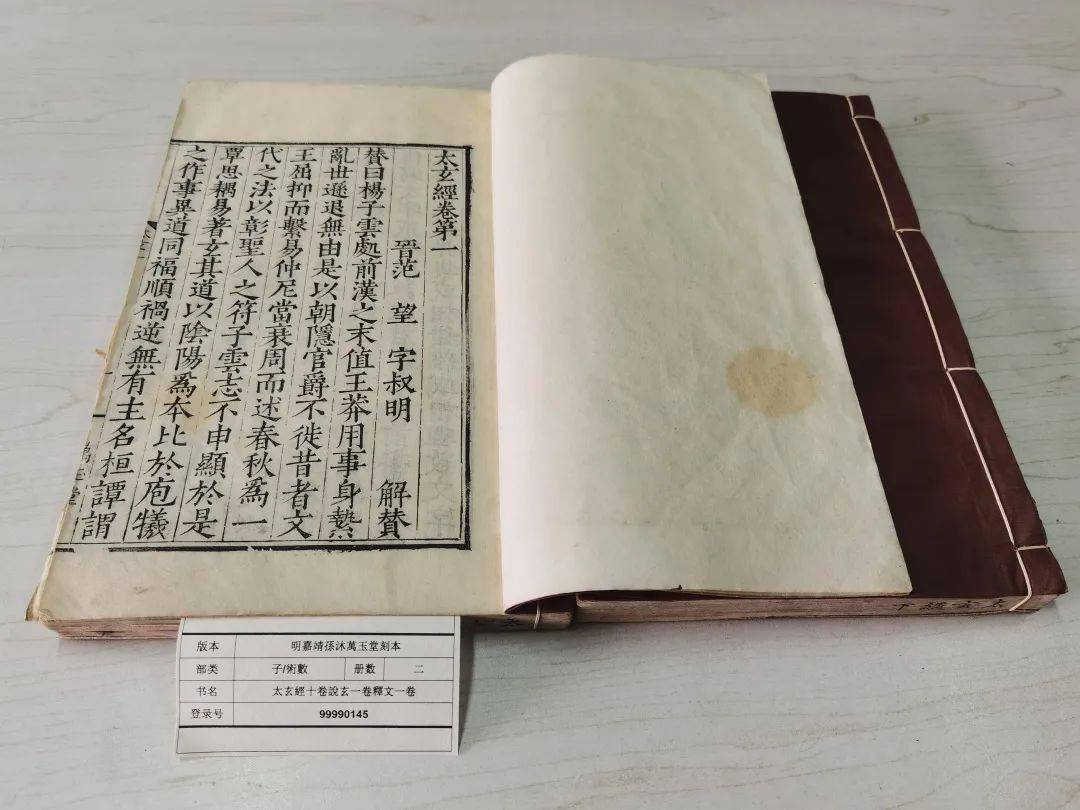 太玄經卷第一
晉范 望 字叔明 解贊
贊曰楊子雲處前漢之末值王莽用事身縶
亂世遜退無由是以朝隱官爵不徙昔者文
王屈抑而繫易仲尼當衰周而述春秋為一
代之法以彰聖人之符子雲志不申顯於是
覃思耦易著玄其道以陰陽為本比於庖犧
之作事異道同福順禍逆無有主名桓譚謂
太玄經下
版本 明嘉靖孫沐萬玉堂刻本
部类 子/術數 册数 二
书名 太玄經十卷說玄一卷釋文一卷
登录号 99990145